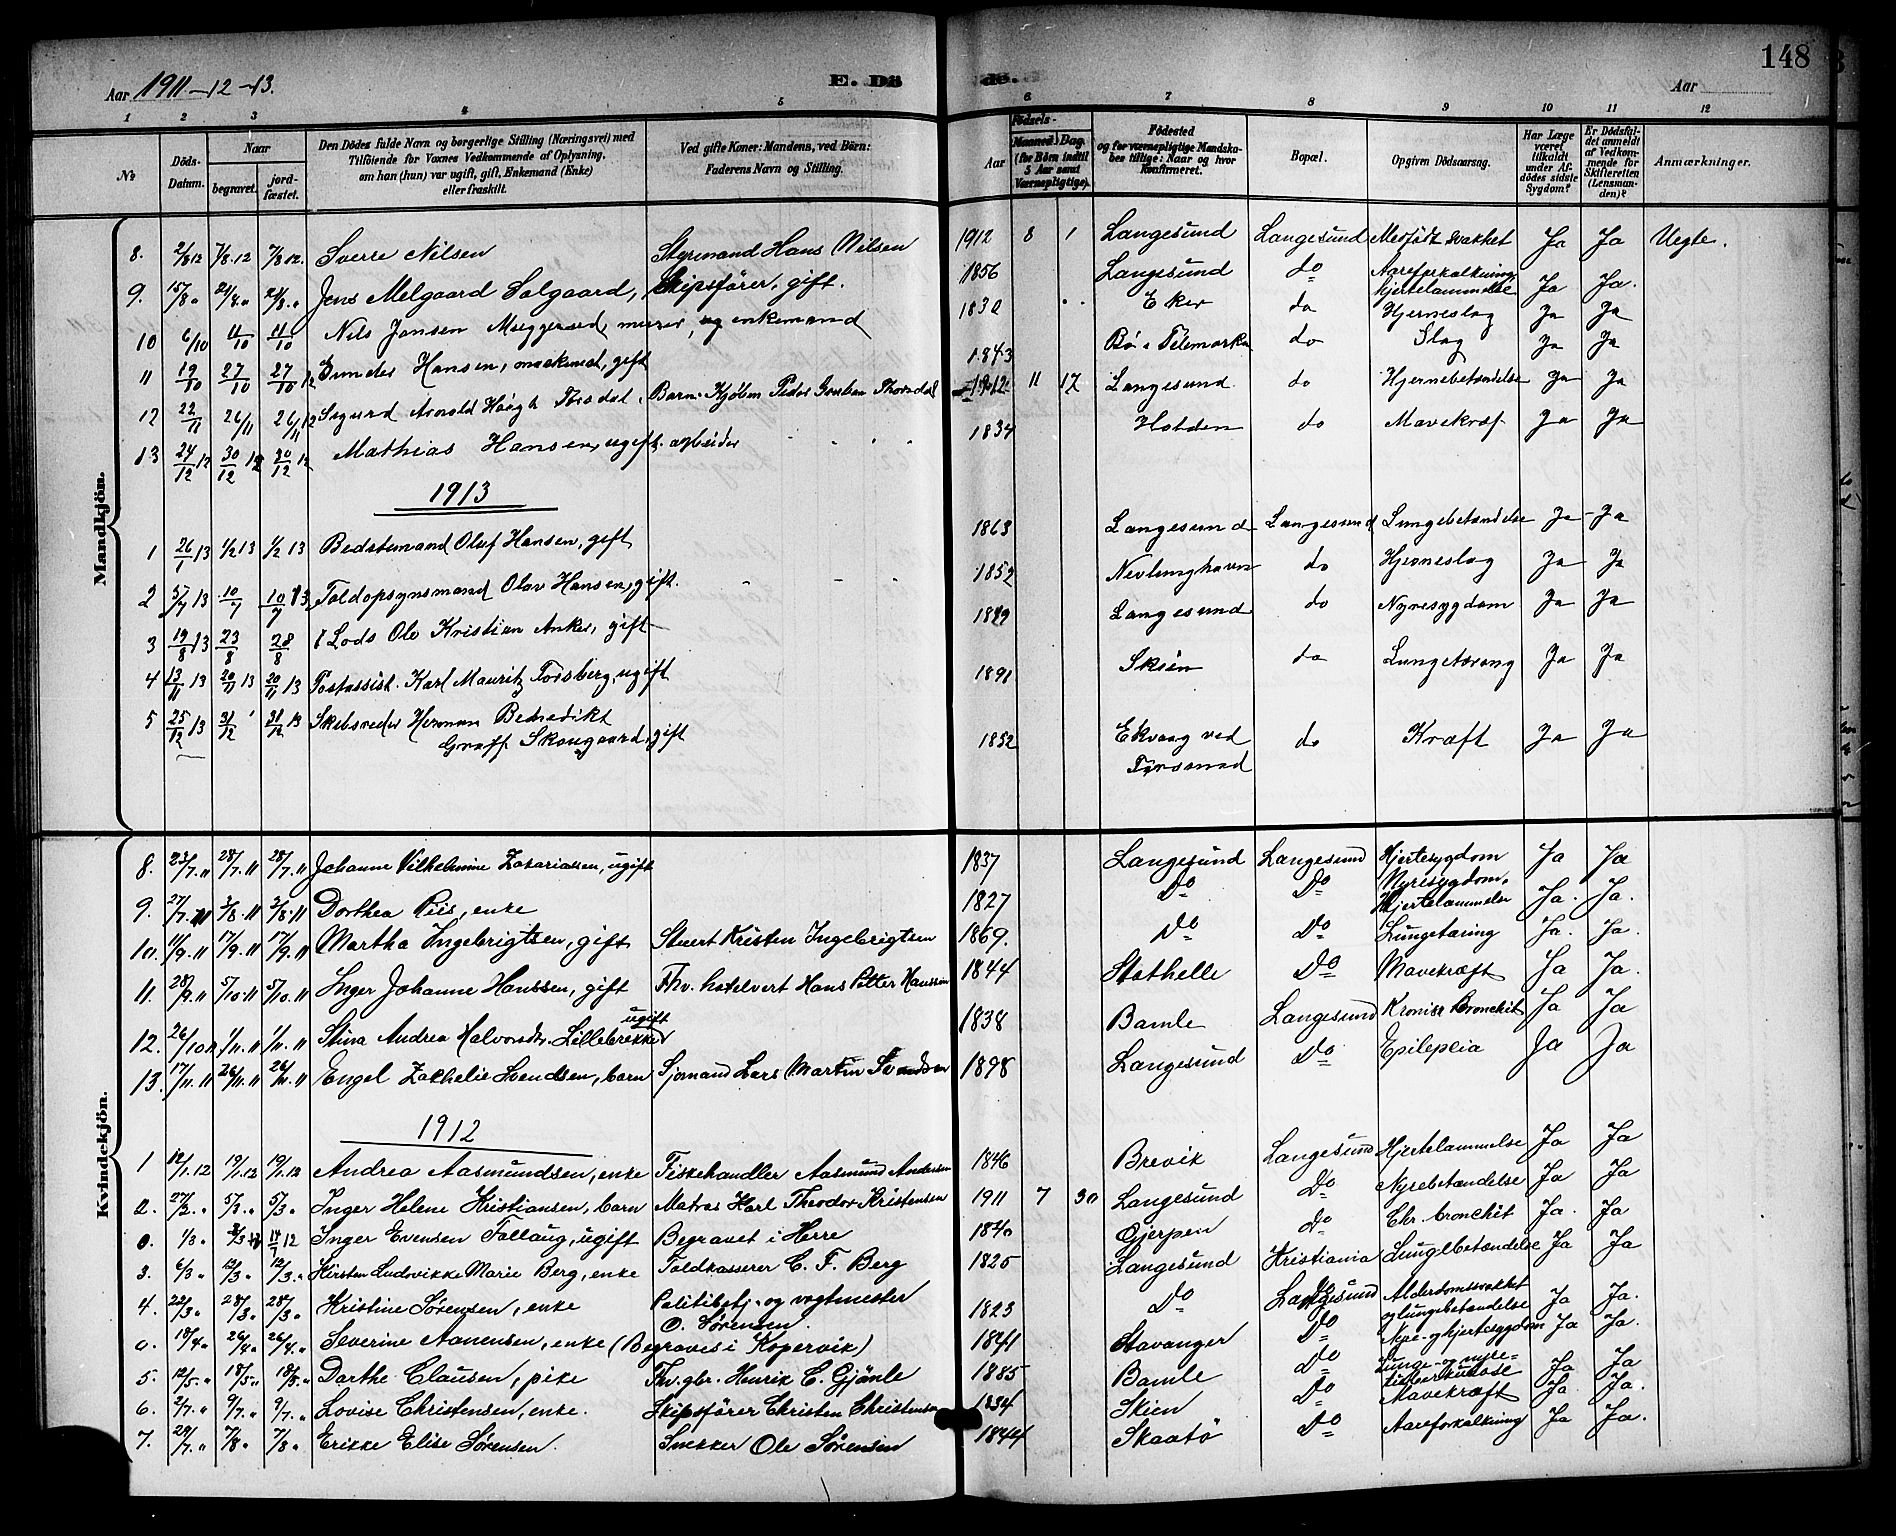 148
Aar 1911.-12-13.
E. Dö de.
Aar
1 2 3 4 5 6 7 8 9 10 11 12
No
Döds-Datum.
Naar
begravet.
jord-fæstet.
Den Dödes fulde Navn og borgerlige Stilling (Næringsvei) med Tilföiende for Voxnes Vedkommende af Oplysning, om han (hun) var ugift, gift, Enkemand (Enke) eller fraskilt.
Ved gifte Koner: Mandens, ved Börn: Faderens Navn og Stilling.
Födsels-
Aar
Maaned. Dag.
(for Börn indtil 5 Aar samt Værnepligtige).
Födested og for værnepligtige Mandskabes tillige: Naar og hvor konfirmeret.
Bopæl.
Opgiven Dödsaarsag.
Har Læge været tilkaldt under Afdödes sidste Sygdom?
Er Dödsfaldet anmeldt af Vedkommende for Skifteretten (Lensmanden)?
Anmærkninger.
Mandkjön.
8. 2/8 12 7/8.12 7/8 12. Sverre Nilsen Styrmand Hans Nilsen 1912 8 1 Langesund Langesund Medfödt svakhet Ja Ja Uegte.
9. 15/8 " 21/8 " 21/8 " Jens Melgaard Salgaard, Skipsförer, gift. 1856 Langesund do Aareforkalkning Hjertelammelse Ja Ja.
10 6/10 11/10 11/10 Nils Jansen Muggerud, murer, enkemand 1830 Eker do Hjerneslag Ja Ja
11 19/10 27/10 27/10 12 Gunder Hansen, gift 1843 Bö i Telemarken do Slag Ja Ja
12 22/11 26/11 26/11 12 Sigurd Arnold Höegh Torsdal, Barn. Kjöbm. Peder 1912 11 17 Langesund do Hjernebetændelse Ja Ja
13 24/12 12 30/12 12 30/12 12 Mathias Hansen, ugift. arbeider 1834 Holden do Mavekræf Ja Ja
1913
1 26/1 13 1/2 13 1/2 13 Bedstemand Oluf Hansen, gift 1863 Langesund Langesund Lungebetændelse Ja Ja
2 5/7 13 10/7 10/7 13 Toldopsynsmand Olav Hansen, gift. 1852 Nevlunghavn do Hjerneslag Ja Ja
3 19/8 13 23/8 28/8 Lods Ole Kristian Anker, gift 1849 Langesund do Nyresygdom Ja Ja
4 13/11 13 20/11 13 20/11 13 Postassist. Karl Mauritz Forsberg, ugift 1891 Skien do Lungetæring Ja Ja
5 25/12 13 31/12 31/12 13 Skibsreder Herman Benedikt
Graff Skougaard, gift 1852 Ekvaag ved do Kræft Ja Ja
Kvindekjön.
8. 23/7." 28/7." 28/7." Johanne Vilhelmine Zakariassen, ugift 1837 Langesund Langesund Hjertesygdom Ja Ja
9. 27/7." 3/8." 3/8." Dorthea Riis, enke 1827 Do Do Nyresygdom. Hjertelammelse Ja. Ja.
10. 11/9." 17/9." 17/9." Martha Ingebrigtsen, gift Stuert Kristen Ingebrigtsen 1869. Do Do Lungetæring Ja. Ja.
11. 28/9." 5/10." 5/10." Inger Johanne Hanssen, gift Fhv. hotelvert Hans Petter Hanssen 1844 Stathelle Do Mavekræft Ja Ja.
12. 26/10 11 1/11." 1/11." Stina Andrea Halvorsdr. Lillebrekke ugift 1838 Bamle Langesund Kronisk Bronchit Ja Ja
13. 17/11." 26/11." 26/11." Engel Zachelie Svendsen, barn Sjömand Lars Martin Svendsen 1898 Langesund Do Epilepsia Ja Ja
1912
1 12/1.12 19/1.12 19/1.12 Andrea Aasmundsen, enke Fiskehandler Aasmund Andersen 1846 Brevik Langesund Hjertelammelse Ja Ja
2. 27/2. " 5/3. " 5/3. " Inger Helene Kristiansen, barn Matros Karl Theodor Kristensen 1911 7 30 Langesund Do Nyrebetændelse Ja Ja
0. 1/3 " Inger Evensen Follaug, ugift Begravet i Herre 1840 Gjerpen Do Chr. bronchit Ja. Ja
3. 6/3 " 12/3 " 12/3 " Kirsten Ludovikke Marie Berg, enke Toldkasserer C. F. Berg 1825 Langesund Kristiania Lungebetændelse Ja Ja
4. 22/3 " 28/3 " 28/3 " Kristine Sörensen, enke Politibetj. og vagtmester O. Sörensen 1823 Do Langesund Alderdomssvakhet og lungebetændelse Ja Ja.
0. 18/4 " 26/4 " 26/4 " Severine Aanensen, enke (Begraves i Kopervik) 1841 Stavanger Do Nyre- og hjertesygdom Ja Ja.
5. 12/5. " 18/5. " 18/5. " Dorthe Clausen, pike Fhv. gbr. Henrik C. Gjömle 1885 Bamle Do Lunge- og nyre-tuberkulose Ja Ja
6. 2/7. " 9/7. " 9/7. " Lovise Christensen, enke. Skipsförer Christen Christensen 1834 Skien Do Mavekræft Ja. Ja.
7. 29/7. " 7/8 " 7/8 " Erikke Elise Sörensen. Snekker Ole Sörensen 1844 Skaatö Do Aareforkalkning Ja Ja.